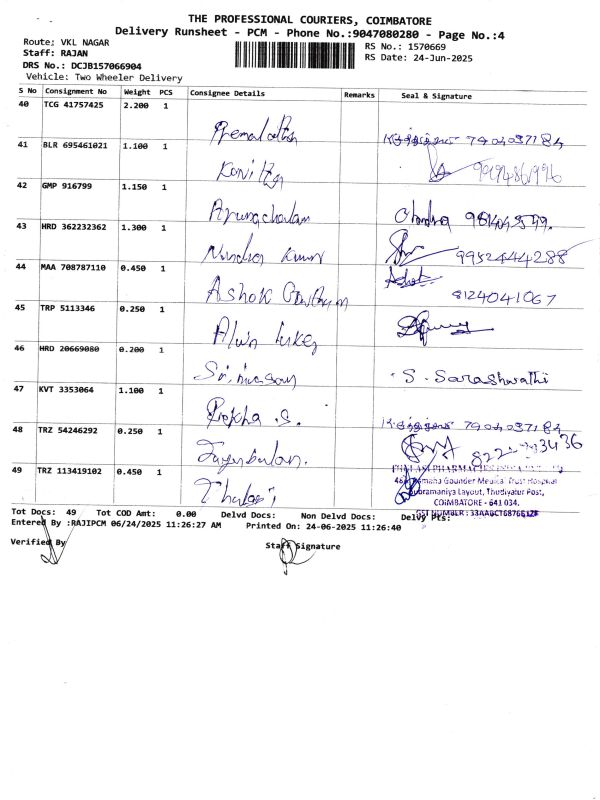 THE PROFESSIONAL COURIERS, COIMBATORE
Delivery Runsheet - PCM - Phone No.:9047080280 - Page No.:4
Route; VKL NAGAR
RS No.: 1570669
Staff: RAJAN
RS Date: 24-Jun-2025
DRS No.: DCJB157066904
Vehicle: Two Wheeler Delivery
S No Consignment No Weight PCS Consignee Details Remarks Seal & Signature
40 TCG 41757425 2.200 1
Premalatha
41 BLR 695461021 1.100 1
Kavitha
42 GMP 916799 1.150 1
Arunachalam Chandra
43 HRD 362232362 1.300 1
Nandha Kumar 9952444288
44 MAA 708787110 0.450 1
Ashok Gowtham Ashok 8124041067
45 TRP 5113346 0.250 1
Alwin Lukes
46 HRD 20669080 0.200 1
Srinivasan S. Sarashwathi
47 KVT 3353064 1.100 1
Rekha .S.
48 TRZ 54246292 0.250 1
Jayabalan.
49 TRZ 113419102 0.450 1
Thulasi
Gounder Medical Trust Hospital
Subramaniya Layout, Thudiyalur Post,
COIMBATORE - 641 034.
Tot Docs: 49 Tot COD Amt: 0.00 Delvd Docs: Non Delvd Docs: Delvy Pts:
GST NUMBER :
Entered By :RAJIPCM 06/24/2025 11:26:27 AM Printed On: 24-06-2025 11:26:40
Verified By Staff Signature